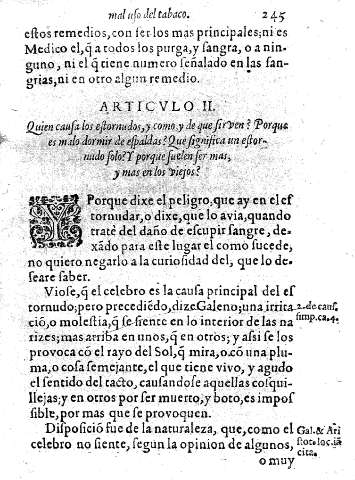 mal uso del tabaco. 245
estos remedios, con ser los mas principales; ni es
Medico el, q̃ a todos los purga, y sangra, o a nin-
guno, ni el q̃ tiene numero señalado en las san-
grias, ni en otro algun remedio.
ARTICVLO II.
Quien causa los estornudos, y como, y de que sirven? Porque
es malo dormir de espaldas? Que significa un estor-
nudo solo? Y porque suelen ser mas,
y mas en los viejos?
Y Porque dixe el peligro, que ay en el es
tornudar, o dixe, que lo avia, quando
traté del daño de escupir sangre, de-
xãdo para este lugar el como sucede,
no quiero negarlo a la curiosidad del, que lo de-
seare saber.
Viose, q̃ el celebro es la causa principal del es
tornudo; pero precediẽdo, dize Galeno; una irrita
ciõ, o molestia, q̃ se siente en lo interior de las na
rizes; mas arriba en unos, q̃ en otros; y assi se los
provoca cõ el rayo del Sol, q̃ mira, o cõ una plu-
ma, o cosa semejante, el que tiene vivo, y agudo
el sentido del tacto, causandose aquellas cosqui-
llejas; y en otros por ser muerto, y boto, es impos
sible, por mas que se provoquen.
2. de caus.
simp. ca. 4.
Disposiciõ fue de la naturaleza, que, como el
celebro no siente, segun la opinion de algunos,
o muy
Gal. & Ari
stot. loc. iã
cita.